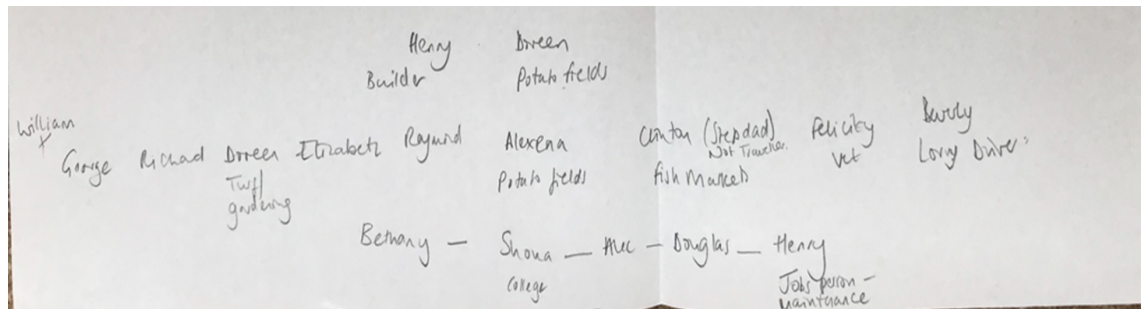 Henry Doreen
Builder Potato fields
William
+
George Richard Doreen Elizabeth Raymond Alexena Clinton (Stepdad) Felicity Beverly
Not Traveller
Turf/ Potato fields fish market vet Lorry Driver
gardening
Bethany — Shona — Alec — Douglas — Henry
College Jobs person –
Maintenance